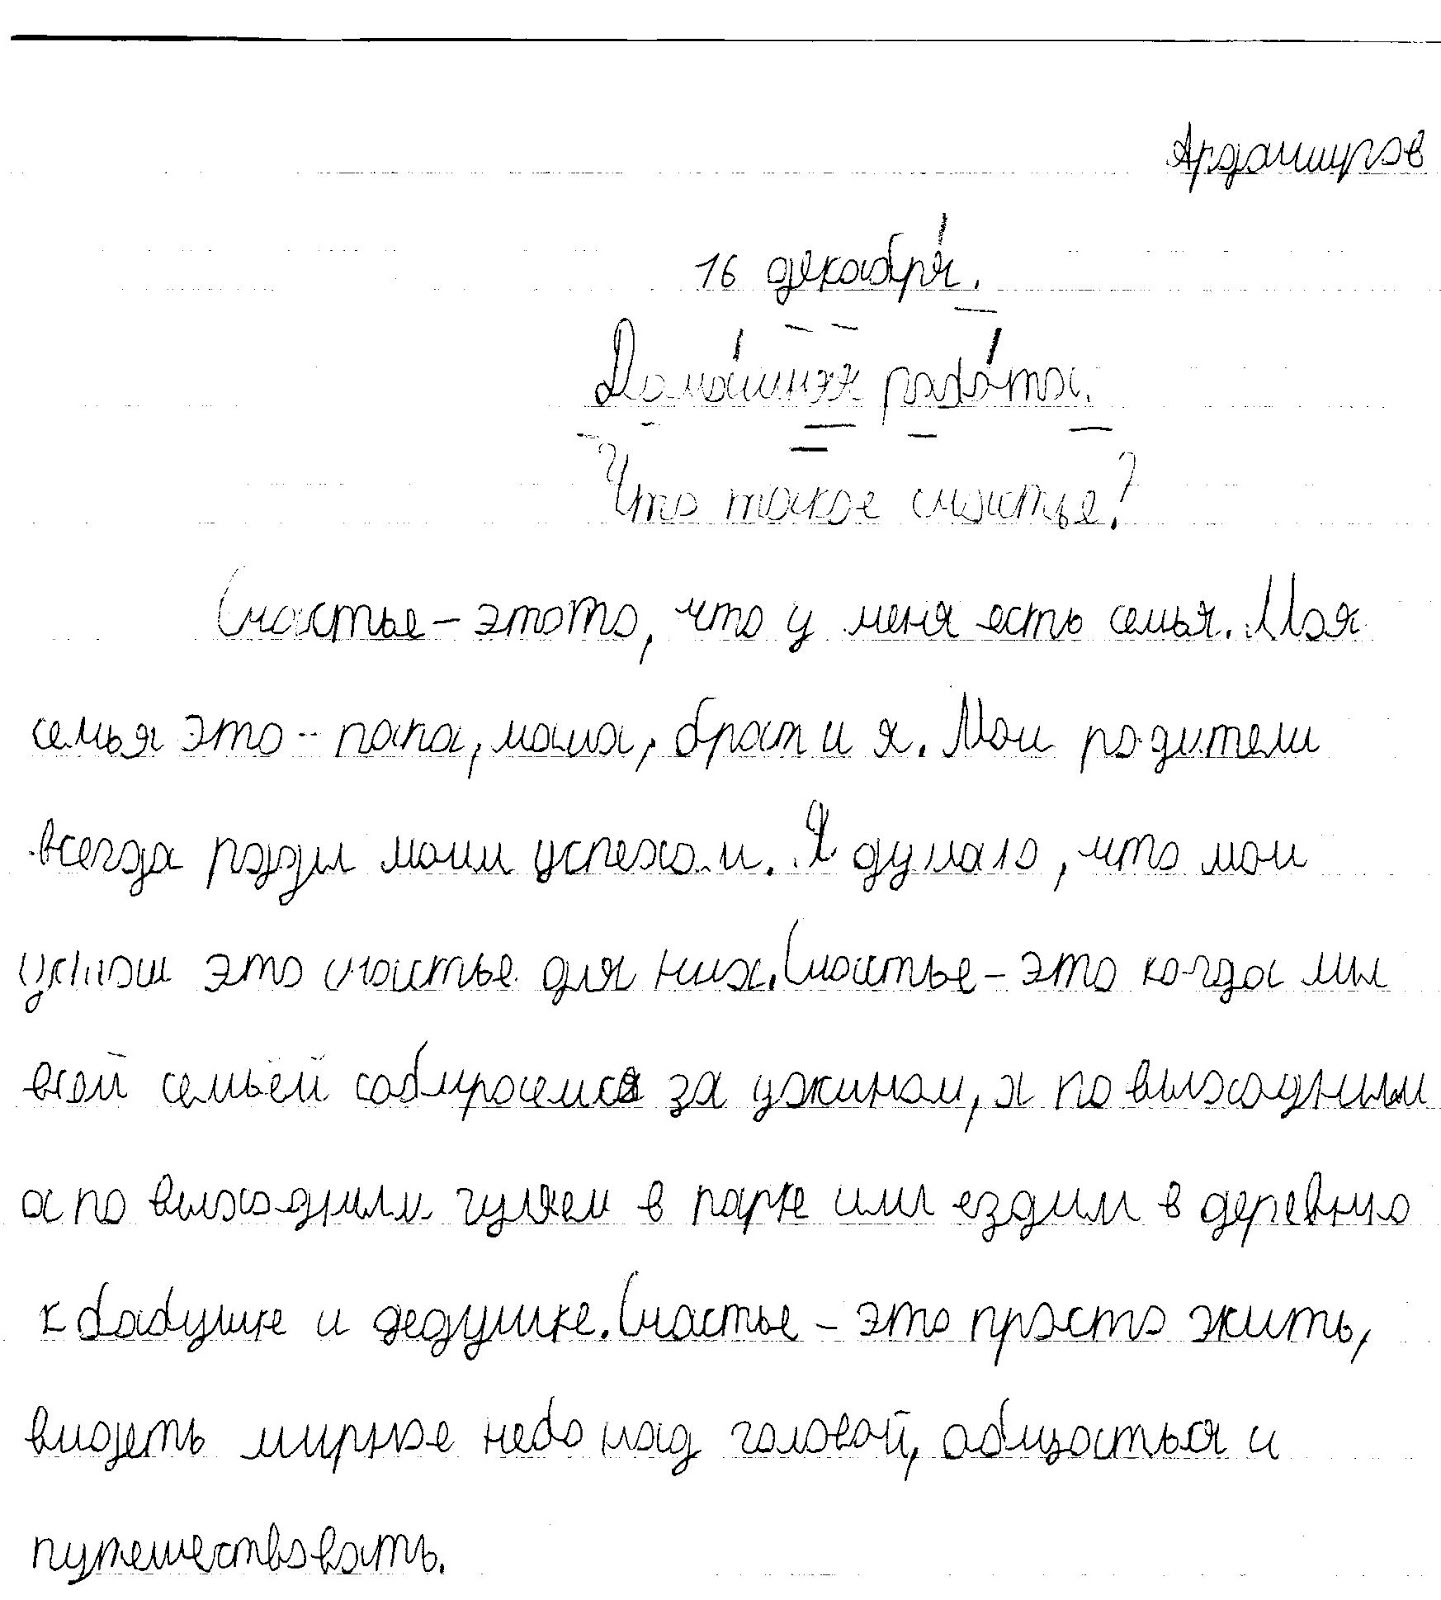 Арданширов
16 декабря.
Домашняя работа.
Что такое счастье?
Счастье – этото, что у меня есть семья. Моя
семья это – папа, мама, брат и я. Мои родители
всегда рады моим успехам. Я думаю, что мои
это счастье для них. Счастье – это когда мы
всей семьёй собираемся за ужином, а по выходным
а по выходным гуляем в парке или ездим в деревню
к бабушке и дедушке. Счастье – это просто жить,
видеть мирное небо над головой, общаться и
путешествовать.